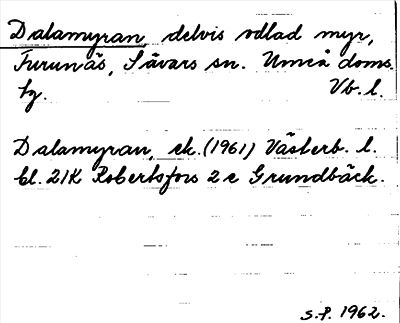 Dalamyran, delvis odlad myr,
Furunäs, Sävars sn. Umeå doms.
hg. Vb. l.
Dalamyran, ek. (1961) Västerb. l.
bl. 21K Robertsfors 2 e Grundbäck.
S.P. 1962.